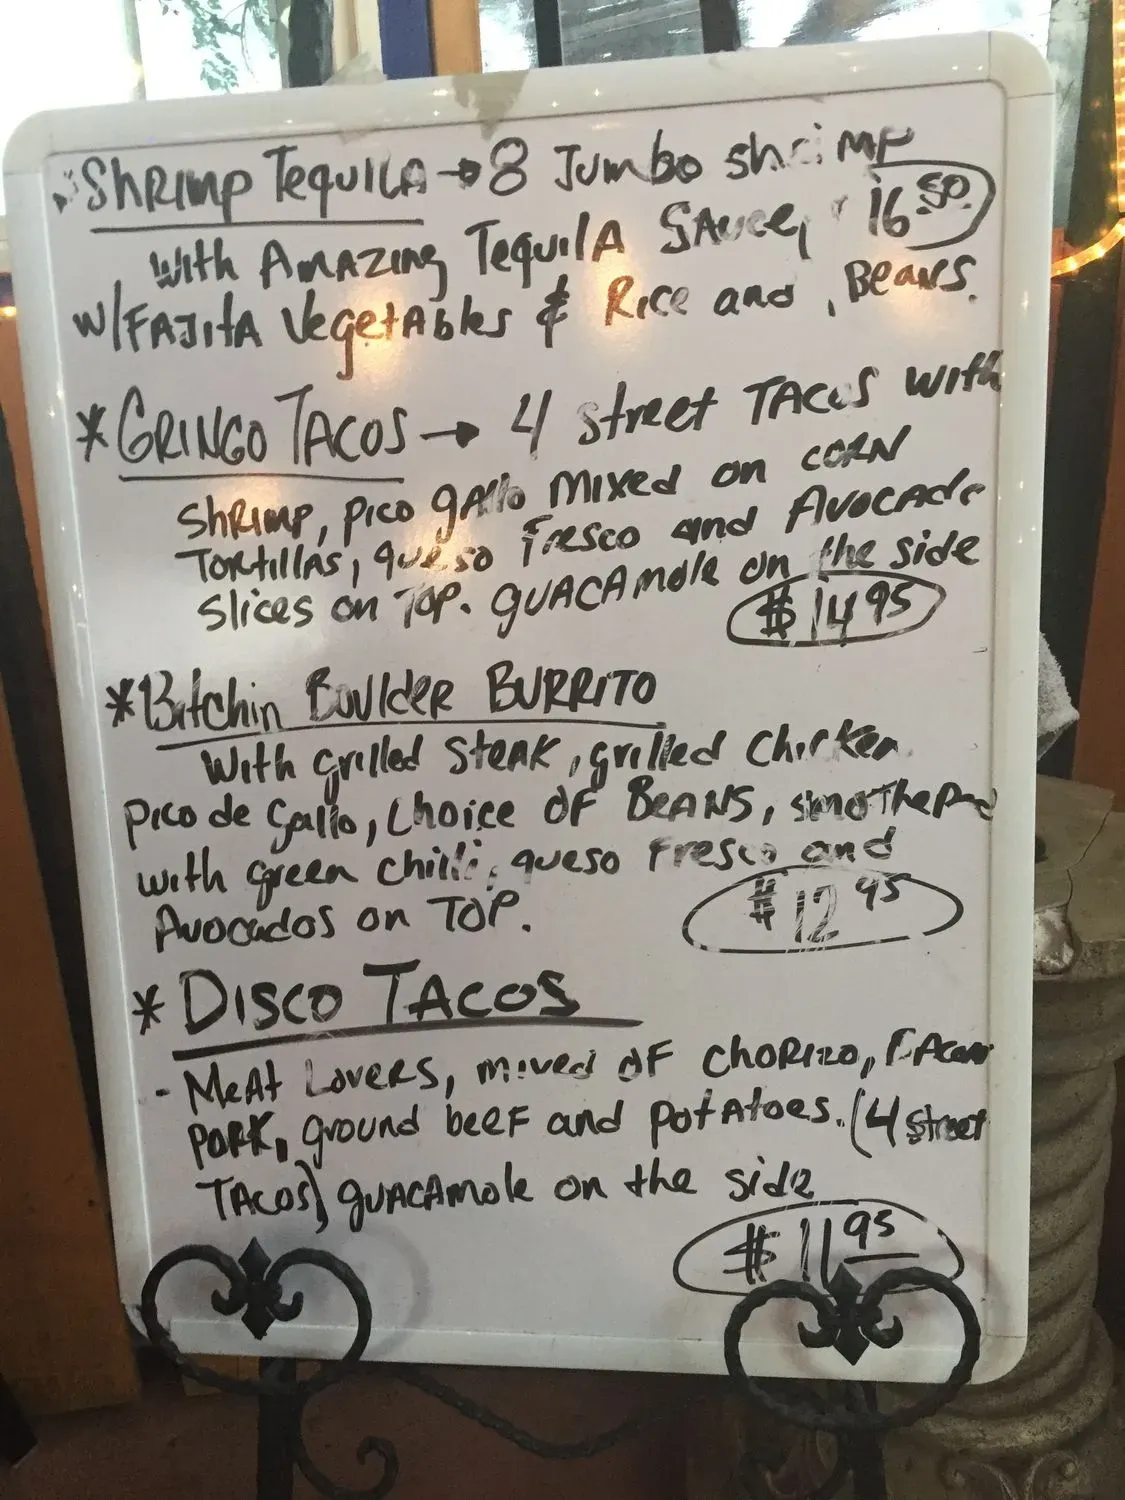 * Shrimp Tequila → 8 Jumbo shrimp
with Amazing Tequila Sauce, 16.50
w/Fajita Vegetables & Rice and, Beans.
* GRINGO TACOS → 4 street TACOS with
shrimp, pico gallo mixed on corn
Tortillas, queso fresco and Avocade
slices on Top. guacamole on the side
$14.95
* Bitchin Boulder BURRITO
with grilled steak, grilled chicken
pico de gallo, choice of Beans, smothered
with green chili, queso fresco and
Avocados on TOP.
$12.95
* DISCO TACOS
- Meat Lovers, mixed of chorizo, Bacon
pork, ground beef and potatoes. (4 street
TACOS) guacamole on the side
$11.95